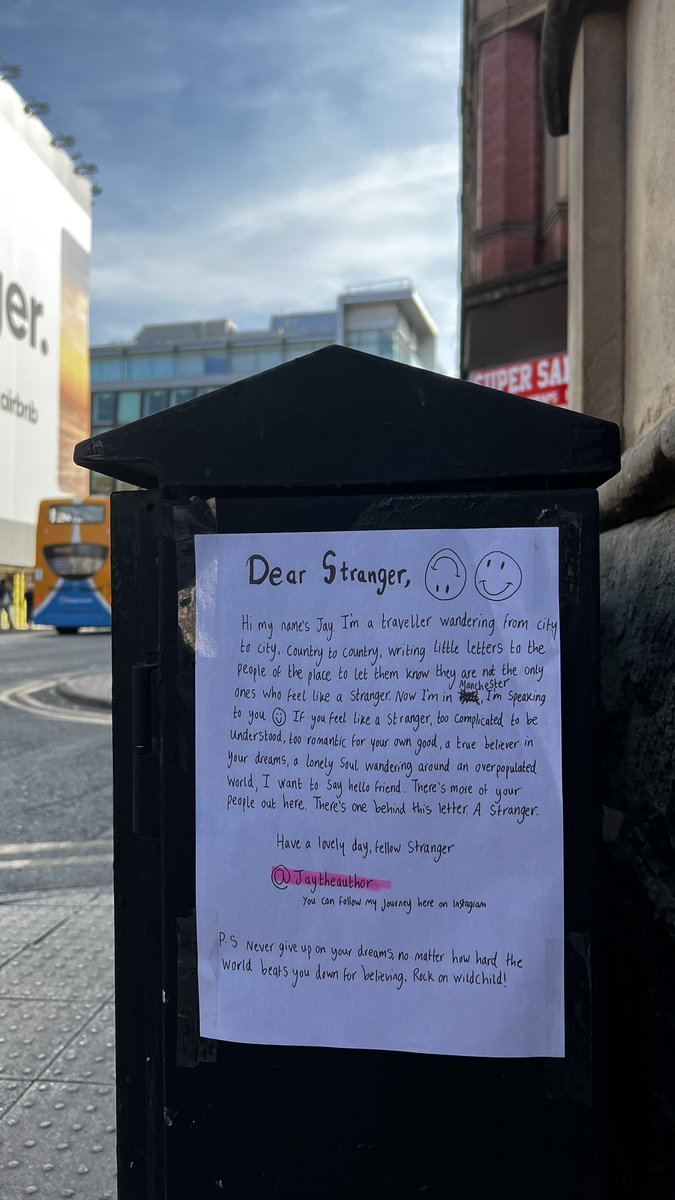 ger.
airbnb
SUPER SAL
Dear Stranger,
Hi my name's Jay. I'm a traveller wandering from city
to city, Country to Country, writing little letters to the
people of the place to let them know they are not the only
ones who feel like a stranger. Now I'm in Manchester, I'm speaking
to you If you feel like a stranger, too complicated to be
understood, too romantic for your own good, a true believer in
your dreams, a lonely soul wandering around an overpopulated
world, I want to say hello friend. There's more of your
people out here. There's one behind this letter. A stranger.
Have a lovely day, fellow stranger
@Jaytheauthor
You can follow my journey here on Instagram
P.S Never give up on your dreams, no matter how hard the
world beats you down for believing. Rock on wildchild!